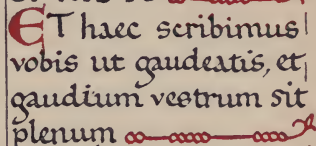 ET haec scribimus
vobis ut gaudeatis, et
gaudium vestrum sit
plenum